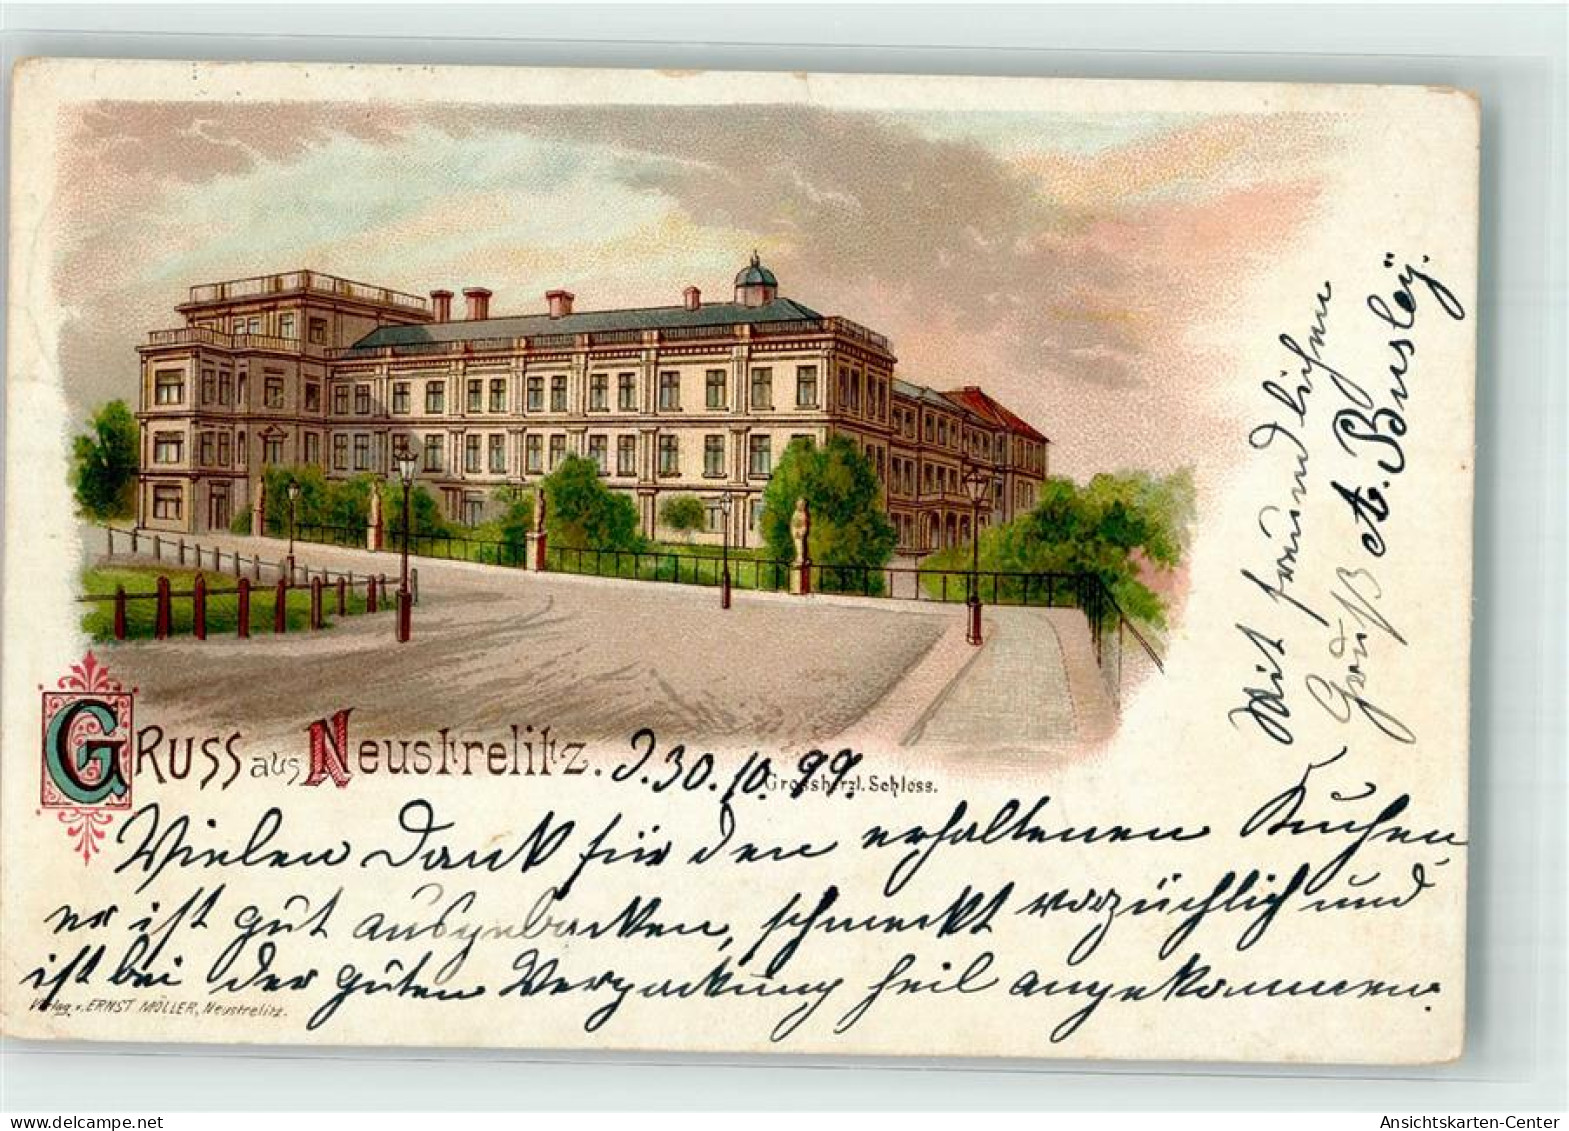 Gruss aus Neustrelitz. d. 30.10.99.
Grossherzl. Schloss.
Vielen Dank für den erhaltenen Kuchen,
er ist gut ausgebacken, schmeckt vorzüglich und
ist bei der guten Verpackung heil angekommen.
Verlag v. ERNST MÖLLER, Neustrelitz.
Mit freundlichem
Gruß A. Busley.
AnsichtsKarten-Center